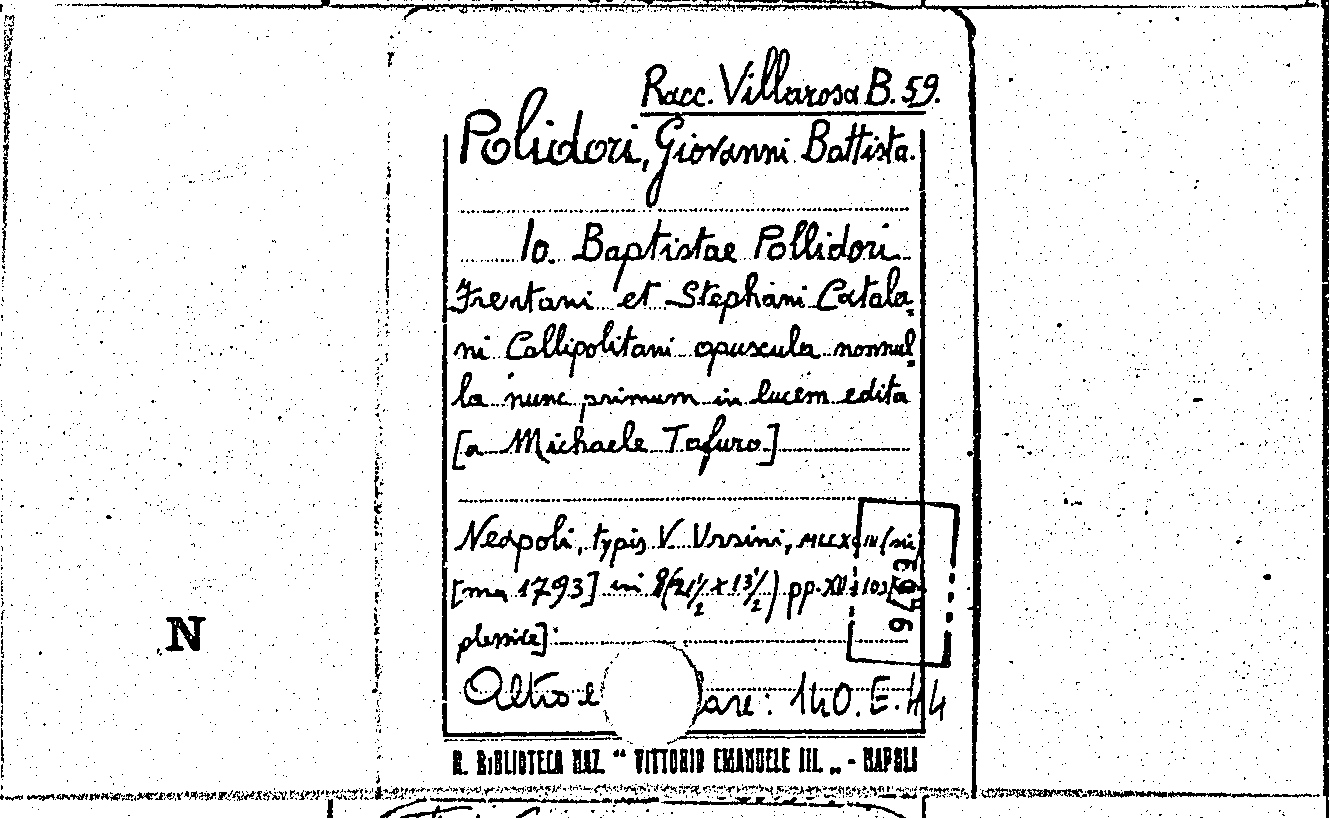 Racc. Villarosa B. 59.
Polidori, Giovanni Battista.
Io. Baptistae Pollidori
Frentani et Stephani Catala
ni Callipolitani opuscula nonnul
la nunc primum in lucem edita
[a Michaele Tafuro]
Neapoli, typis V. Ursini, (sic)
[ma 1793] in 8 (21 1/2 x 13 1/2) pp. XII
plessive].
Altro e are: 140. E. 44
R. BIBLIOTECA NAZ. “ VITTORIO EMANUELE III. „ - NAPOLI
N